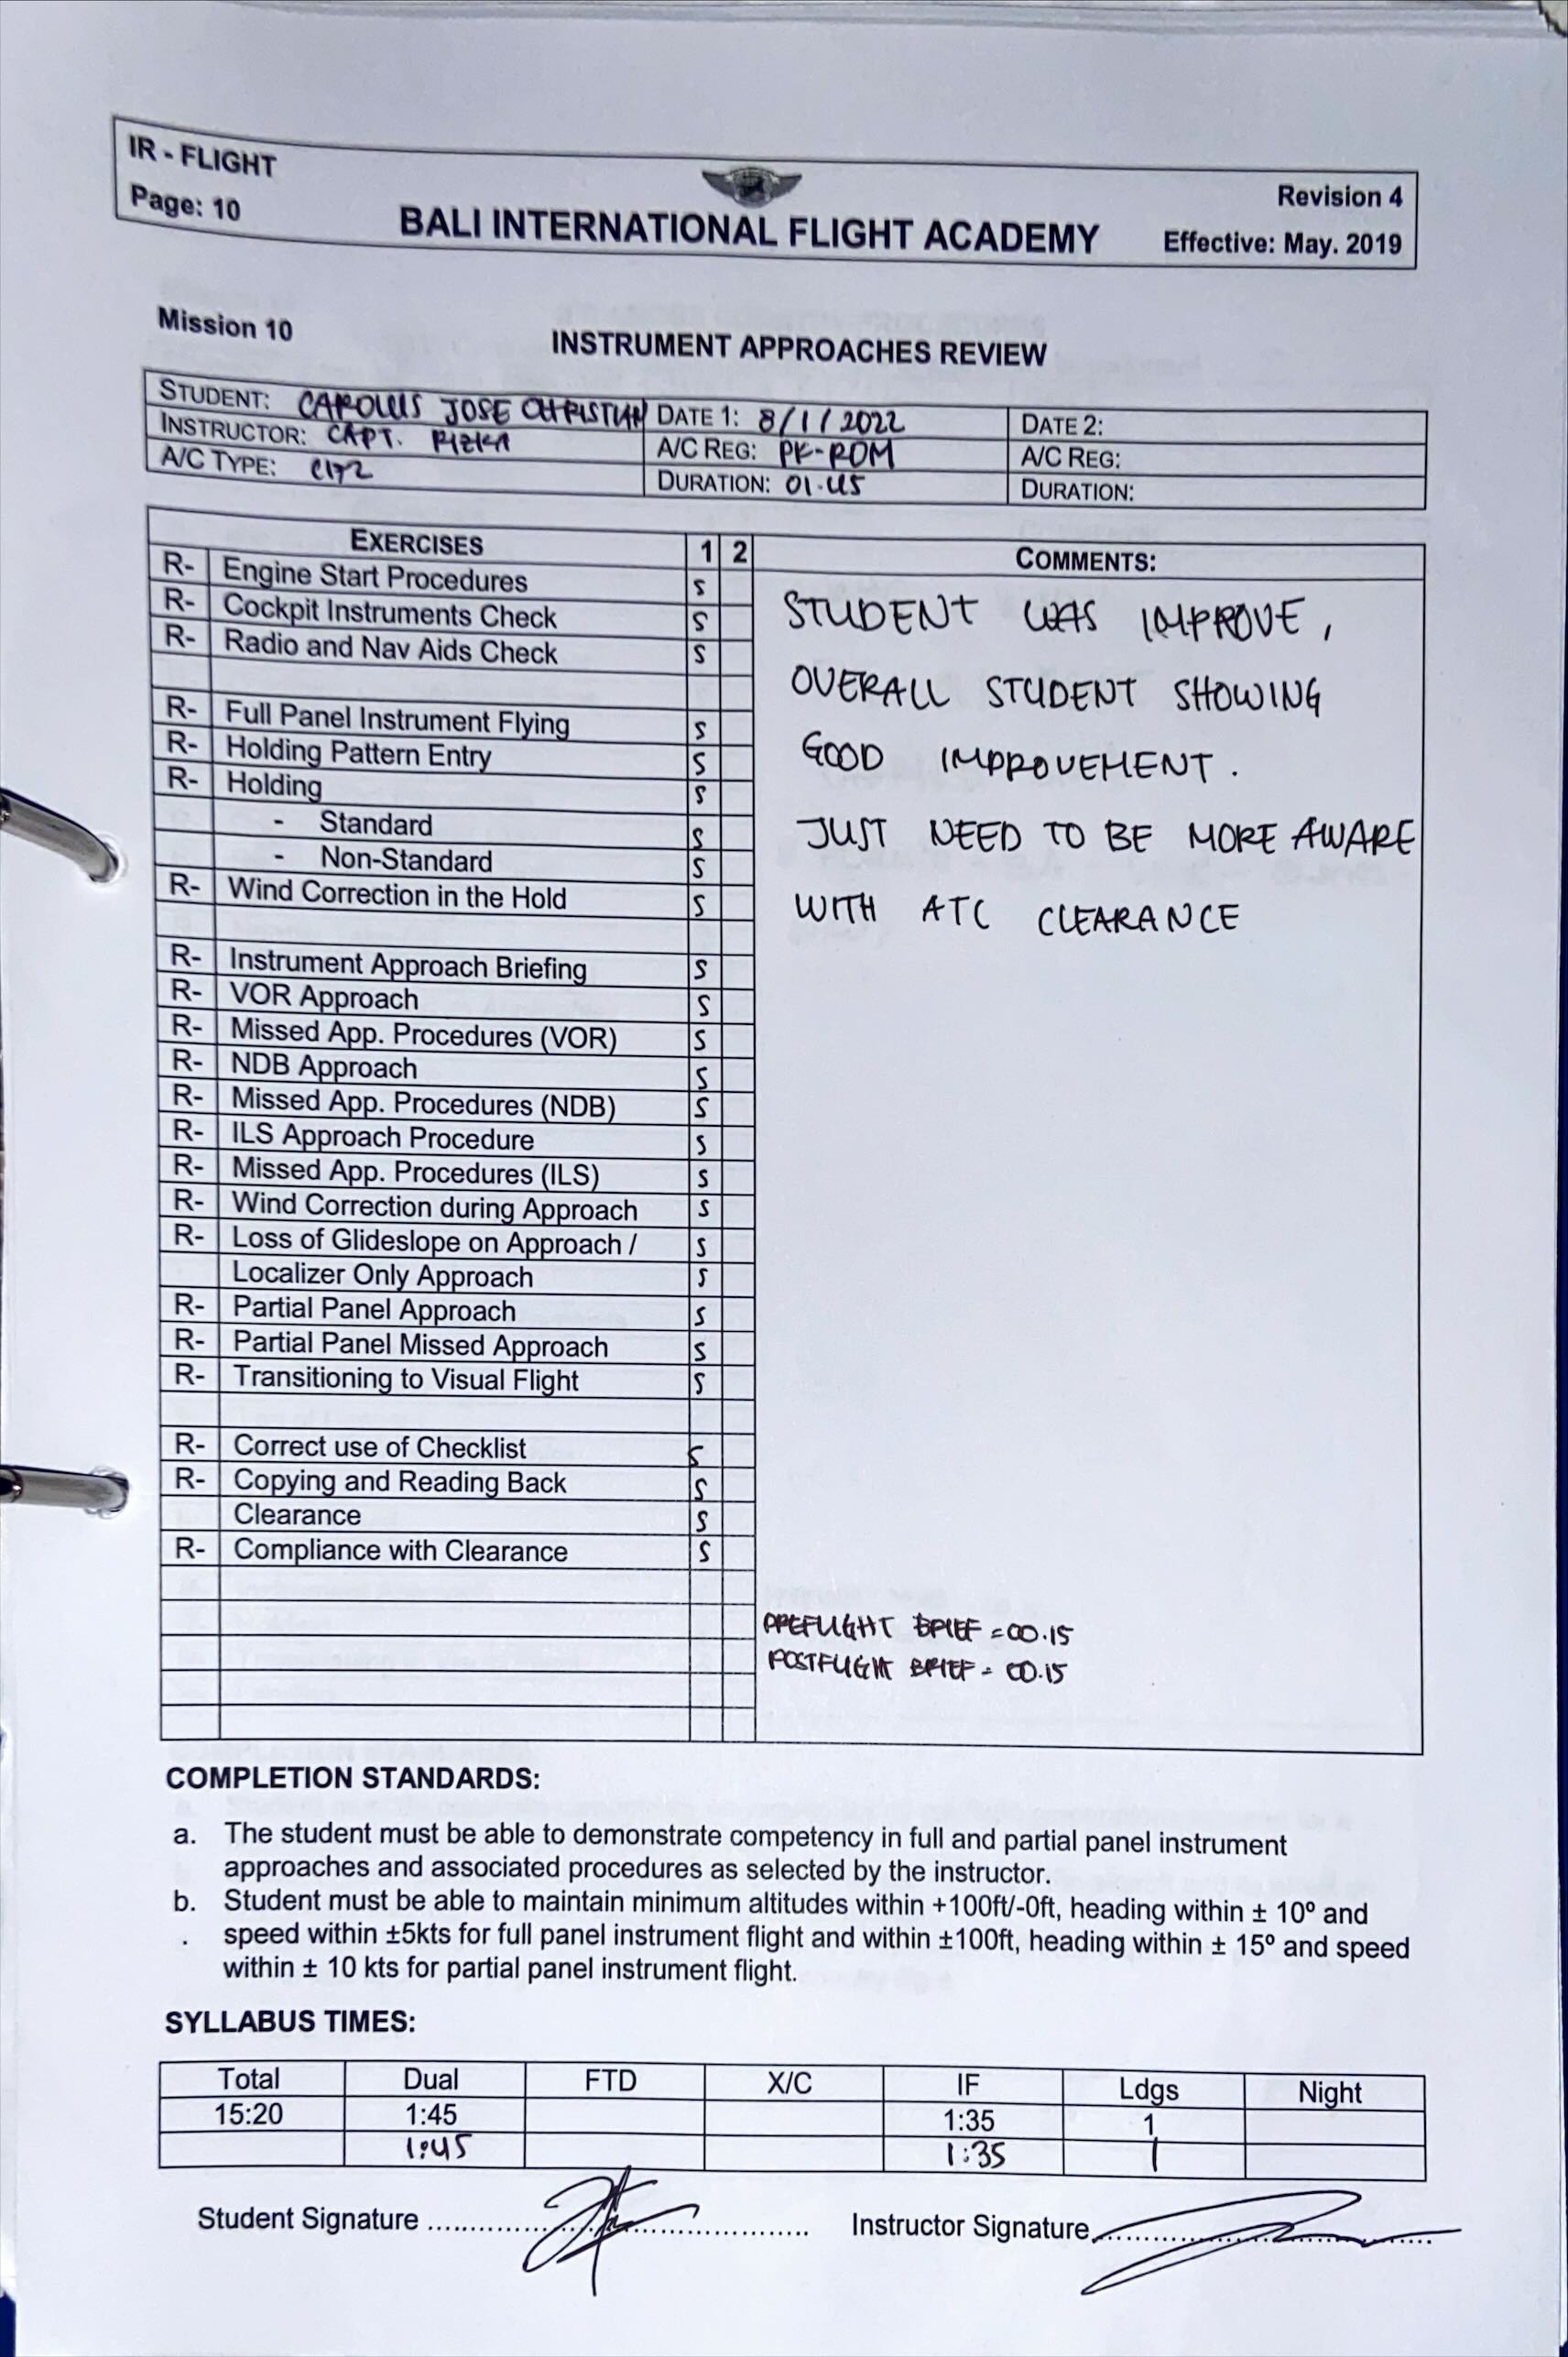 IR - FLIGHT
Page: 10
BALI INTERNATIONAL FLIGHT ACADEMY
Revision 4
Effective: May. 2019
Mission 10
INSTRUMENT APPROACHES REVIEW
STUDENT: CAROLUS JOSE CHRISTIAN DATE 1: 8/1/2022 DATE 2:
INSTRUCTOR: CAPT. RIZKA A/C REG: PK-ROM A/C REG:
A/C TYPE: C172 DURATION: 01.45 DURATION:
EXERCISES 1 2
R- Engine Start Procedures S
R- Cockpit Instruments Check S
R- Radio and Nav Aids Check S
R- Full Panel Instrument Flying S
R- Holding Pattern Entry S
R- Holding S
- Standard S
- Non-Standard S
R- Wind Correction in the Hold S
R- Instrument Approach Briefing S
R- VOR Approach S
R- Missed App. Procedures (VOR) S
R- NDB Approach S
R- Missed App. Procedures (NDB) S
R- ILS Approach Procedure S
R- Missed App. Procedures (ILS) S
R- Wind Correction during Approach S
R- Loss of Glideslope on Approach / S
Localizer Only Approach S
R- Partial Panel Approach S
R- Partial Panel Missed Approach S
R- Transitioning to Visual Flight S
R- Correct use of Checklist S
R- Copying and Reading Back S
Clearance S
R- Compliance with Clearance S
COMMENTS:
STUDENT WAS IMPROVE,
OVERALL STUDENT SHOWING
GOOD IMPROVEMENT.
JUST NEED TO BE MORE AWARE
WITH ATC CLEARANCE
PREFLIGHT BRIEF = 00.15
POSTFLIGHT BRIEF = 00.15
COMPLETION STANDARDS:
a. The student must be able to demonstrate competency in full and partial panel instrument
approaches and associated procedures as selected by the instructor.
b. Student must be able to maintain minimum altitudes within +100ft/-0ft, heading within ± 10º and
. speed within ±5kts for full panel instrument flight and within ±100ft, heading within ± 15º and speed
within ± 10 kts for partial panel instrument flight.
SYLLABUS TIMES:
Total Dual FTD X/C IF Ldgs Night
15:20 1:45 1:35 1
1:45 1:35 1
Student Signature Instructor Signature